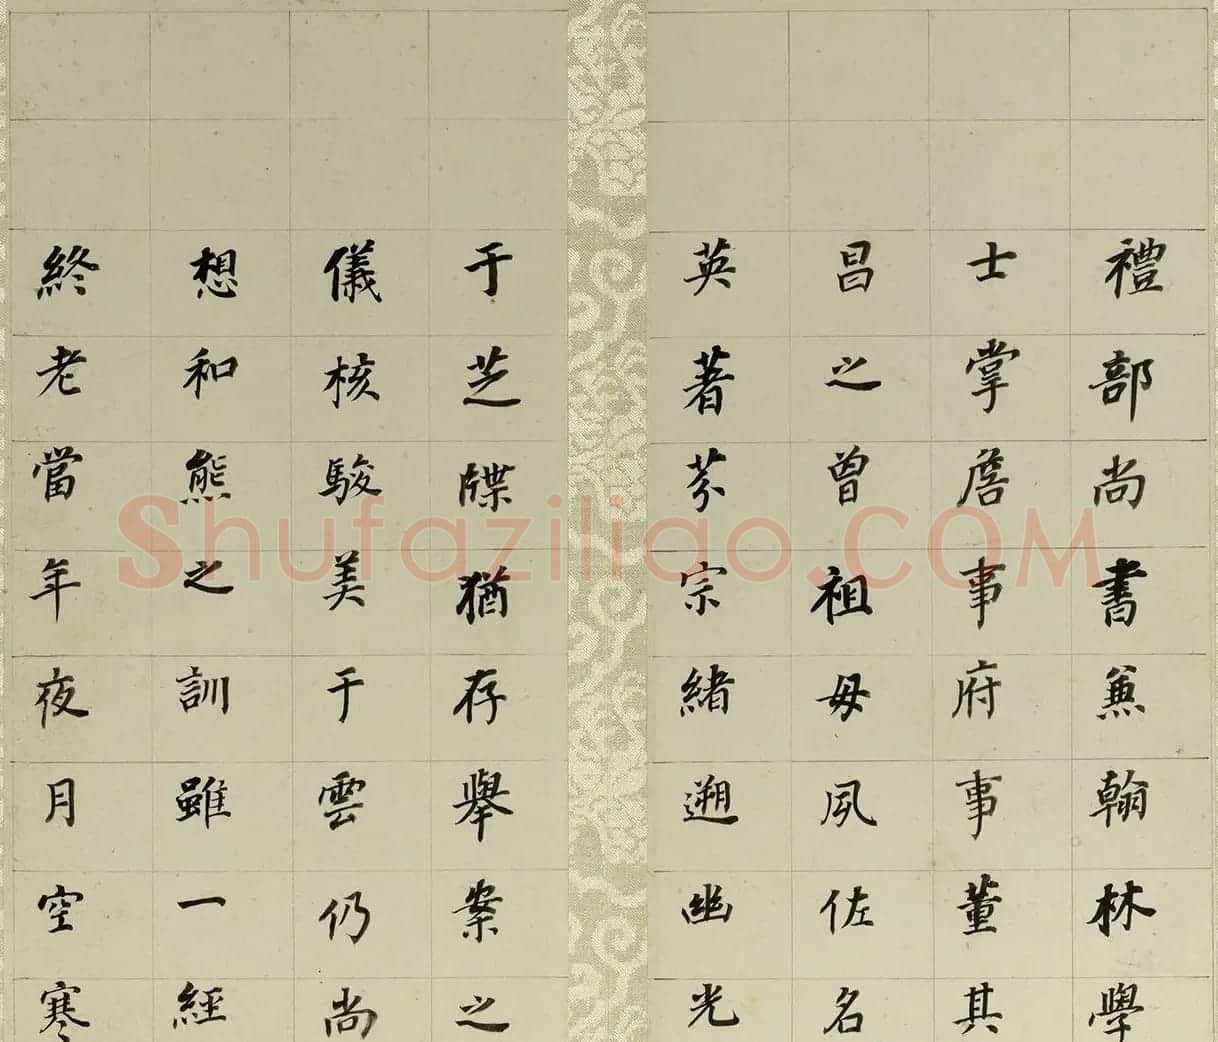 禮部尚書兼翰林學
士掌詹事府事董其
昌之曾祖母夙佐名
英著芬宗緒遡幽光
于芝牒猶存舉案之
儀核駿美于雲仍尚
想和熊之訓雖一經
終老當年夜月空寒
Shufaziliao.COM